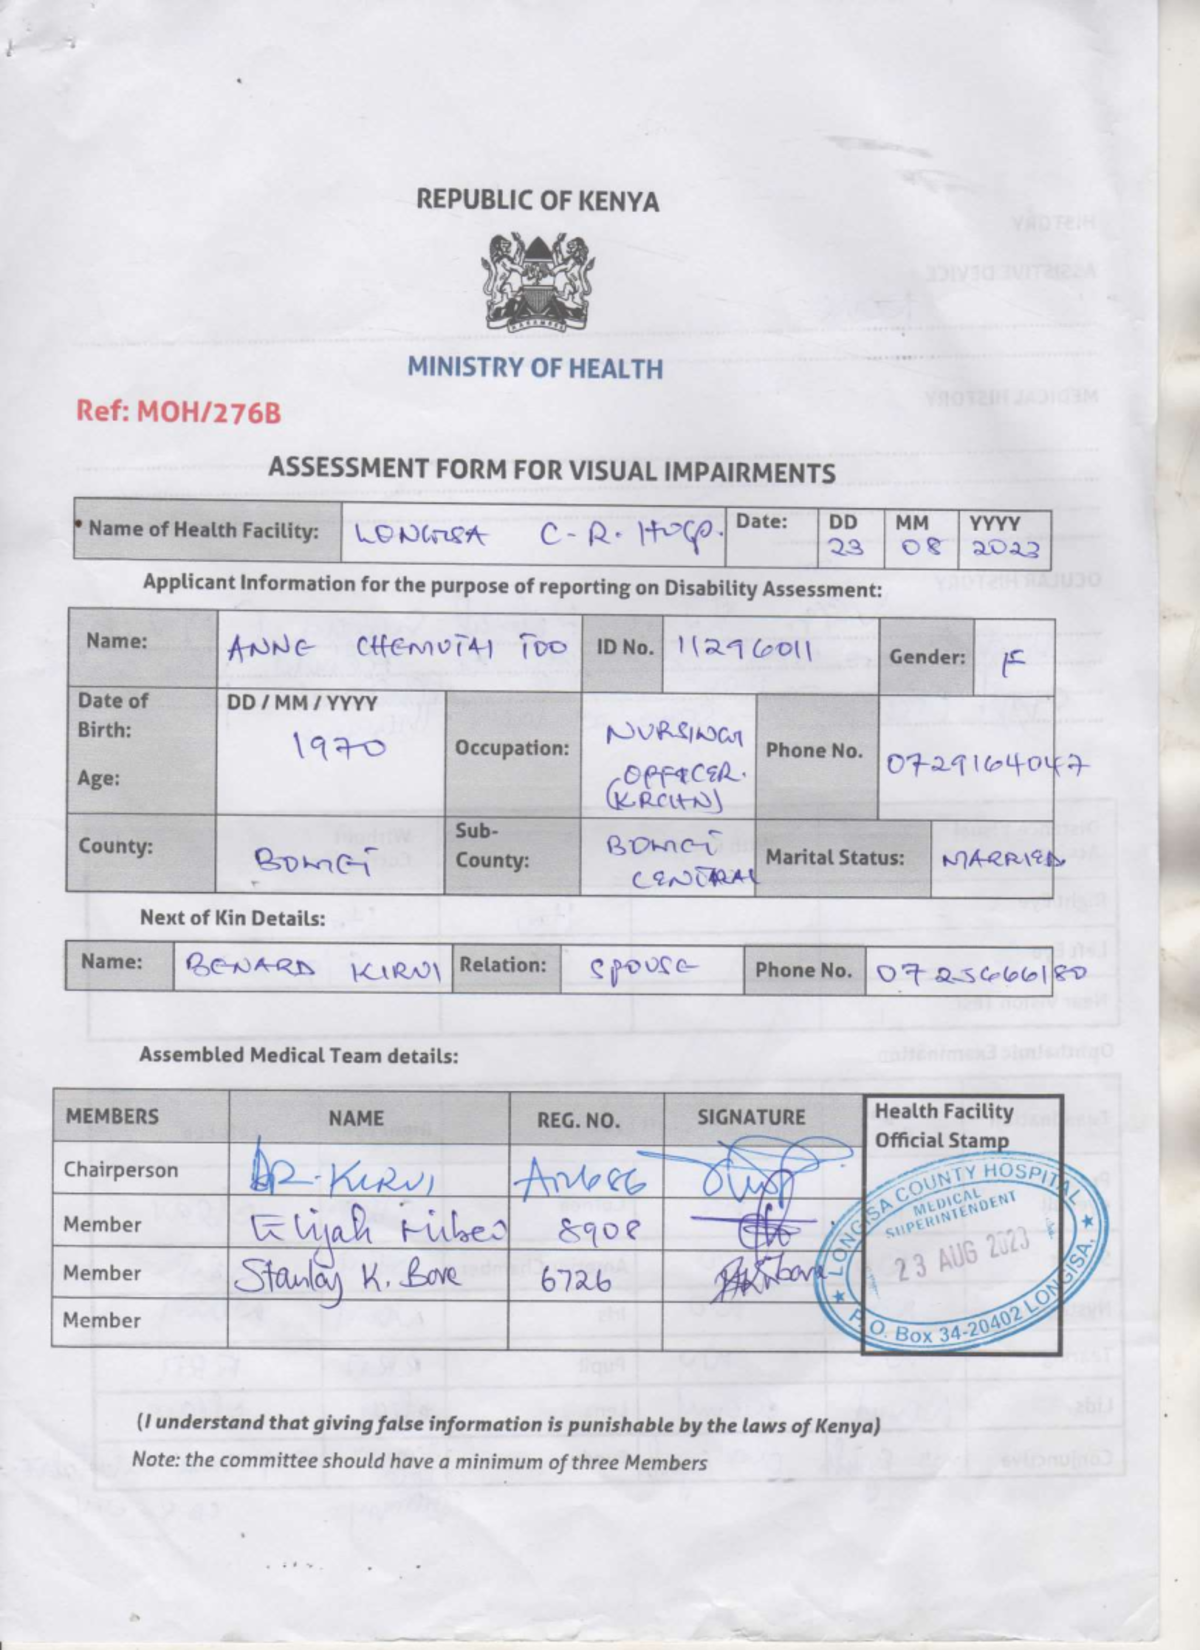 REPUBLIC OF KENYA
HARAMBEE
MINISTRY OF HEALTH
Ref: MOH/276B
ASSESSMENT FORM FOR VISUAL IMPAIRMENTS
Name of Health Facility: LONGISA C.R. HOSP. Date: DD MM YYYY
23 08 2023
Applicant Information for the purpose of reporting on Disability Assessment:
Name: ANNE CHEMUTAI TOO ID No. 11296011 Gender: F
Date of Birth: DD / MM / YYYY
1970
Age:
Occupation: NURSING OFFICER. (KRCHN)
Phone No. 0729164047
County: BOMET Sub-County: BOMET CENTRAL Marital Status: MARRIED
Next of Kin Details:
Name: BENARD KIRUI Relation: SPOUSE Phone No. 0725666180
Assembled Medical Team details:
MEMBERS NAME REG. NO. SIGNATURE Health Facility Official Stamp
Chairperson DR. KIRUI
Member Elijah 8908
Member Stanley K. Bore 6726
Member
LONGISA COUNTY HOSPITAL
MEDICAL SUPERINTENDENT
23 AUG 2023
P.O. Box 34-20402 LONGISA.
(I understand that giving false information is punishable by the laws of Kenya)
Note: the committee should have a minimum of three Members